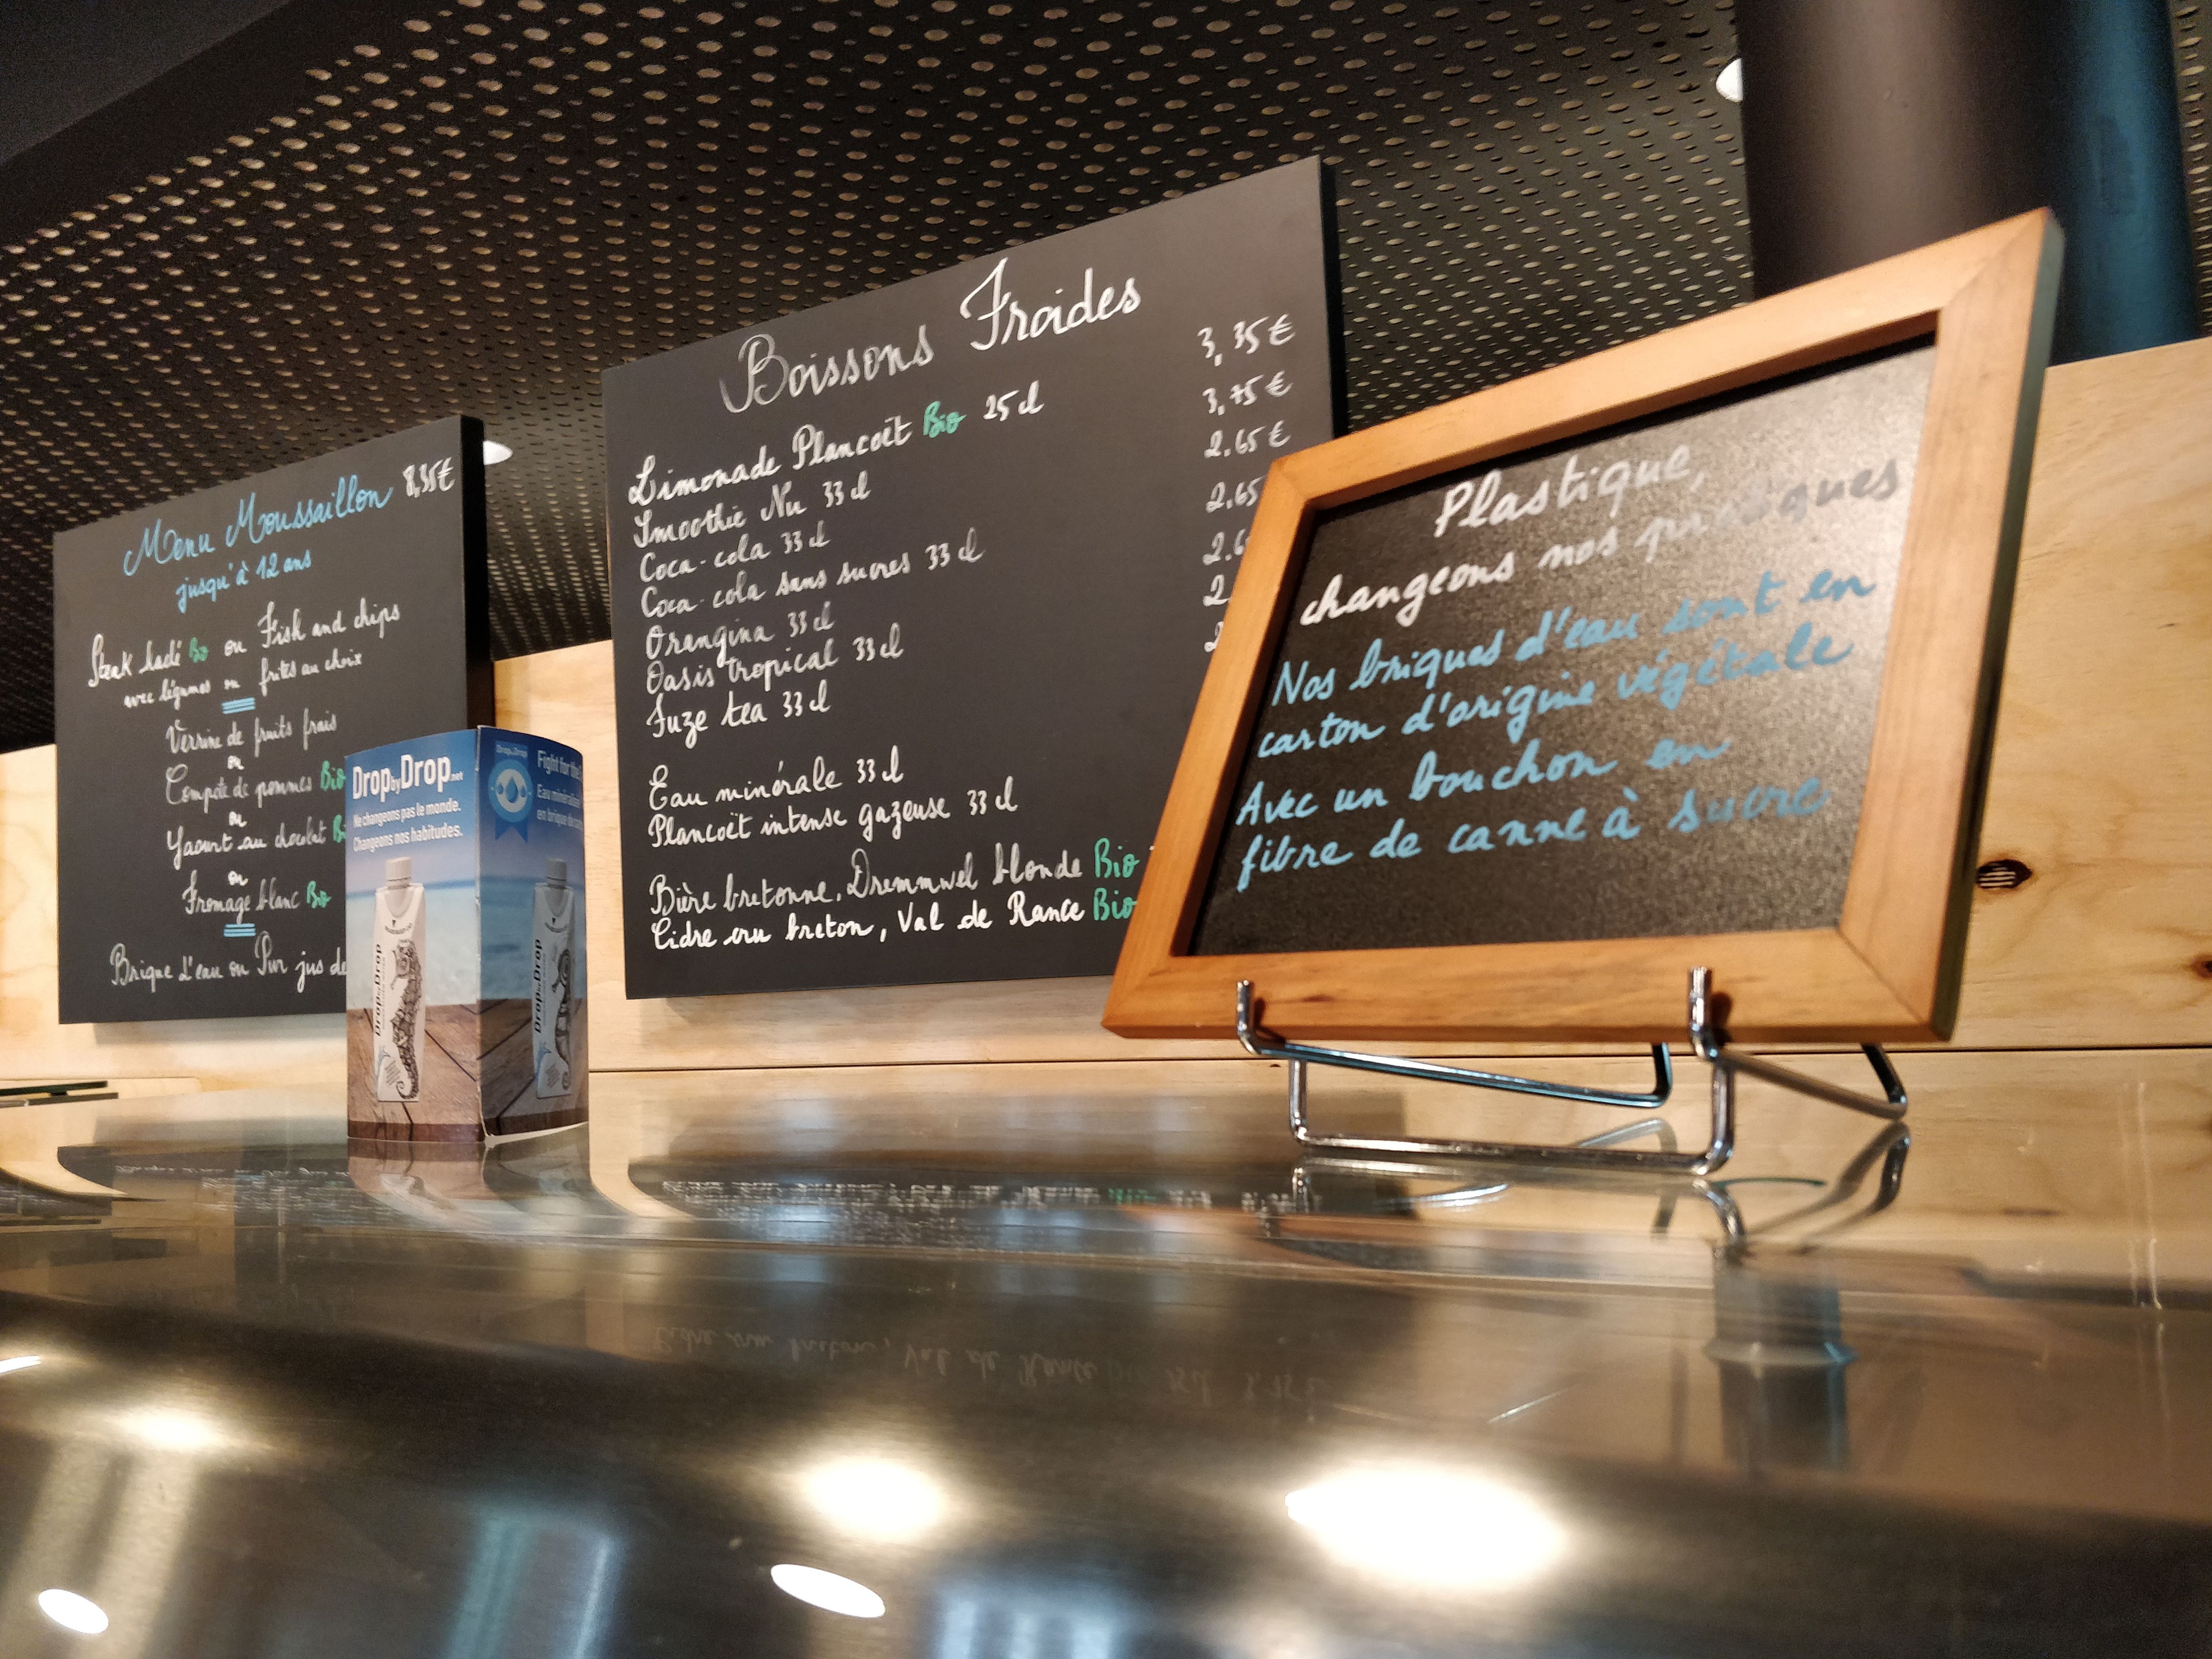 Menu Moussaillon 8,35€
jusqu'à 12 ans
Steak haché Bio ou Fish and chips
avec légumes ou frites au choix
Verrine de fruits frais
ou
Compote de pommes Bio
ou
Yaourt au chocolat Bi
ou
Fromage blanc Bio
Brique d'eau ou Pur jus de
DropbyDrop.net
Ne changeons pas le monde.
Changeons nos habitudes.
DropbyDrop
Drop by Drop
Fight for the
Eau minérale
en brique
DropbyDrop
Boissons Froides
Limonade Plancoët Bio 25cl 3,35€
Smoothie Nu 33cl 3,75€
Coca-cola 33cl 2.65€
Coca-cola sans sucres 33cl 2.65
Orangina 33cl 2.6
Oasis tropical 33cl 2.
Fuze tea 33cl 2
Eau minérale 33cl
Plancoët intense gazeuse 33cl
Bière bretonne, Dremmwel blonde Bio
Cidre cru breton, Val de Rance Bio
Plastique,
changeons nos pratiques
Nos briques d'eau sont en
carton d'origine végétale
Avec un bouchon en
fibre de canne à sucre